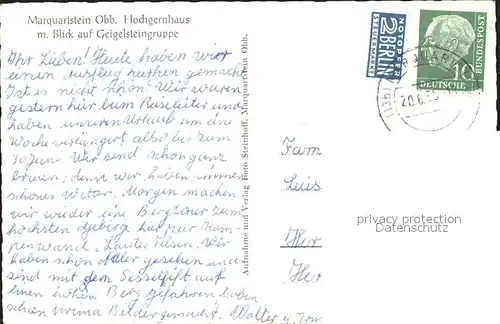 Marquartstein Obb. Hochgernhaus
m. Blick auf Geigelsteingruppe
Ihr Lieben! Heute haben wir
einen Ausflug hierhin gemacht
Ist es nicht schön? Wir waren
gestern hier beim Reiseleiter und
haben unseren Urlaub um eine
Woche verlängert also bis zum
30 Juni. Wir sind schon ganz
braun, denn wir haben immer
schönes Wetter. Morgen machen
wir wieder eine Bergtour zum
höchsten Gebirg hier zur Kam-
penwand. Lauter Felsen. Wir
haben schon aller gesehen und
sind mit dem Sessellift auf
einen hohen Berg gefahren haben
schon prima Bilder gemacht. Walter u.
Aufnahme und Verlag Foto Steinhoff, Marquartstein Obb.
NOTOPFER
2 BERLIN
STEUERMARKE
DEUTSCHE BUNDESPOST
10
(13b)
20.6.
Fam
Luis
Her
Her
privacy protection
Datenschutz